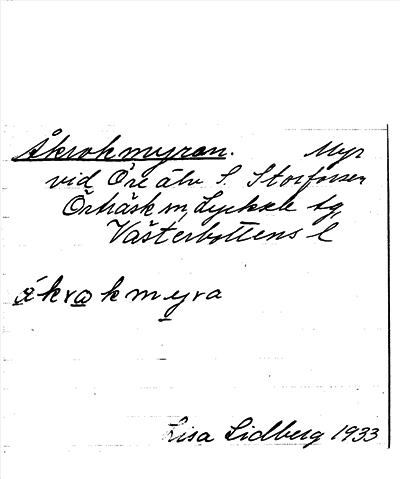 Åkrokmyran. Myr
vid Öre älv S. Storforsen
Örträsk sn, Lycksele tg,
Västerbottens l
åkrokmyra
Lisa Lidberg 1933